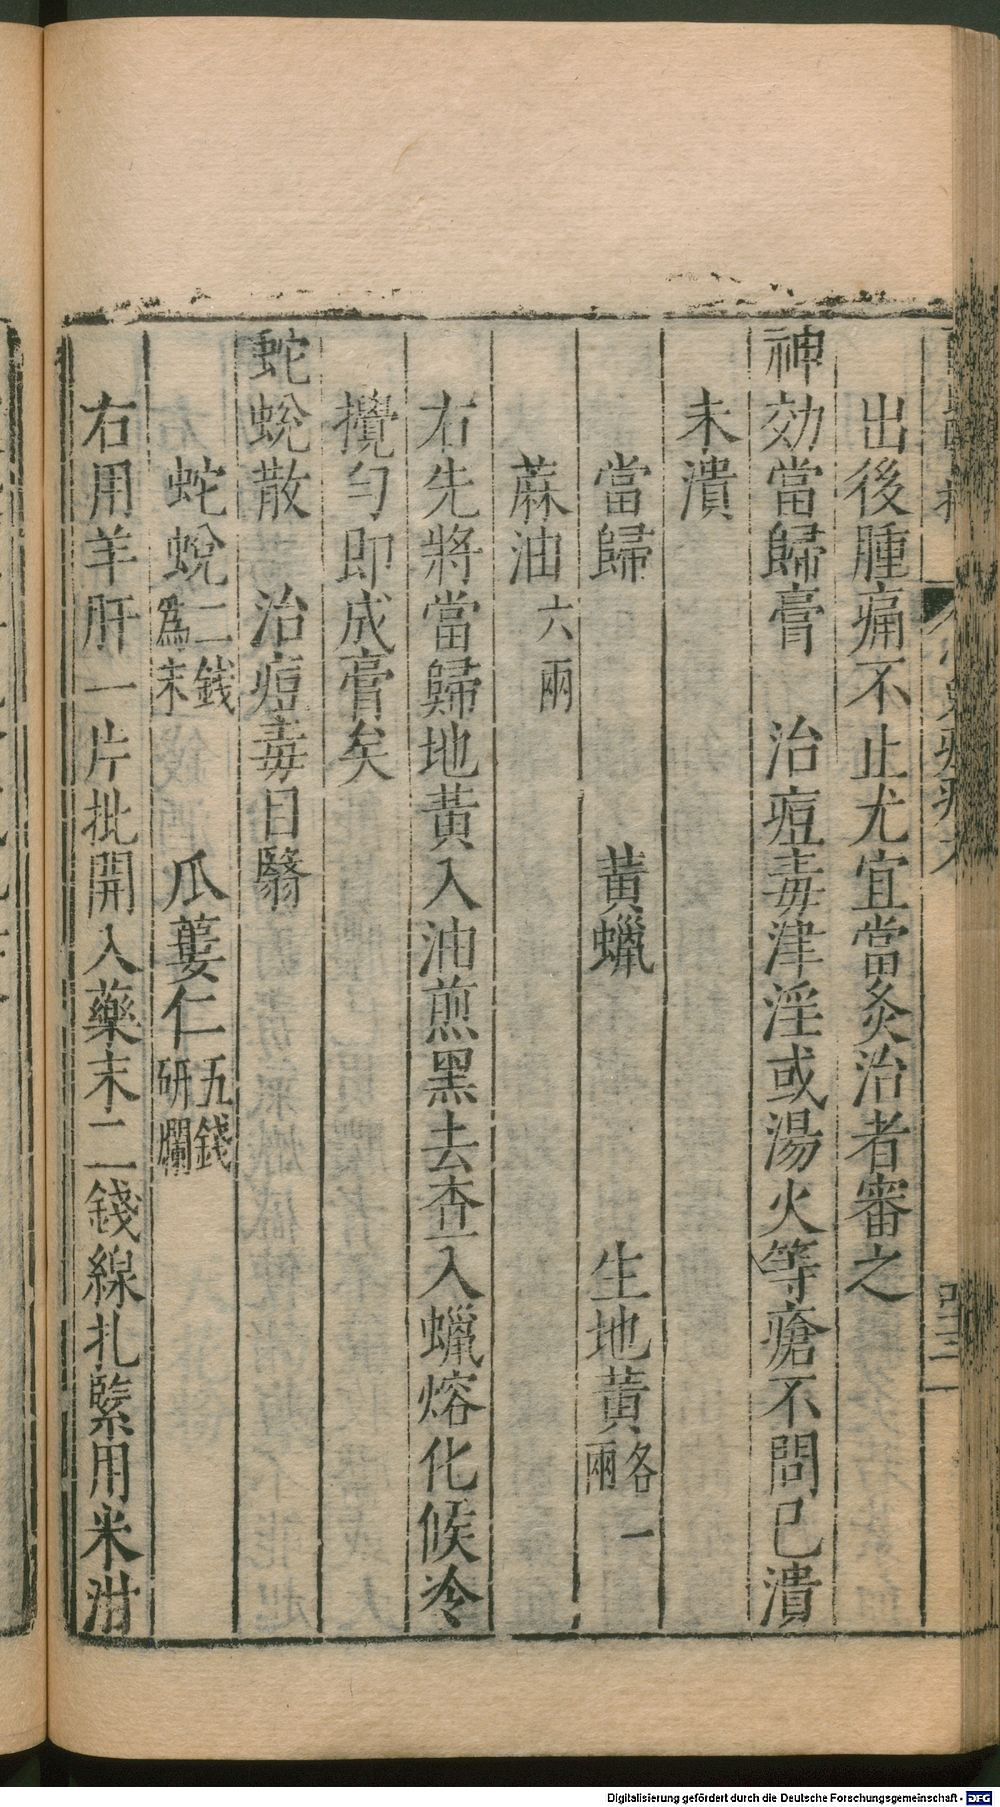 出後腫痛不止尤宜當灸治者審之
神効當歸膏　治痘毒津淫或湯火等瘡不問已潰
未潰
當歸　黃蠟　生地黃各一兩
蔴油六兩
右先將當歸地黃入油煎黑去查入蠟熔化候冷
攪勻即成膏矣
蛇蛻散　治痘毒目翳
蛇蛻二錢為末　瓜蔞仁五錢研爛
右用羊肝一片批開入藥末二錢線扎緊用米泔
Digitalisierung gefördert durch die Deutsche Forschungsgemeinschaft - DFG